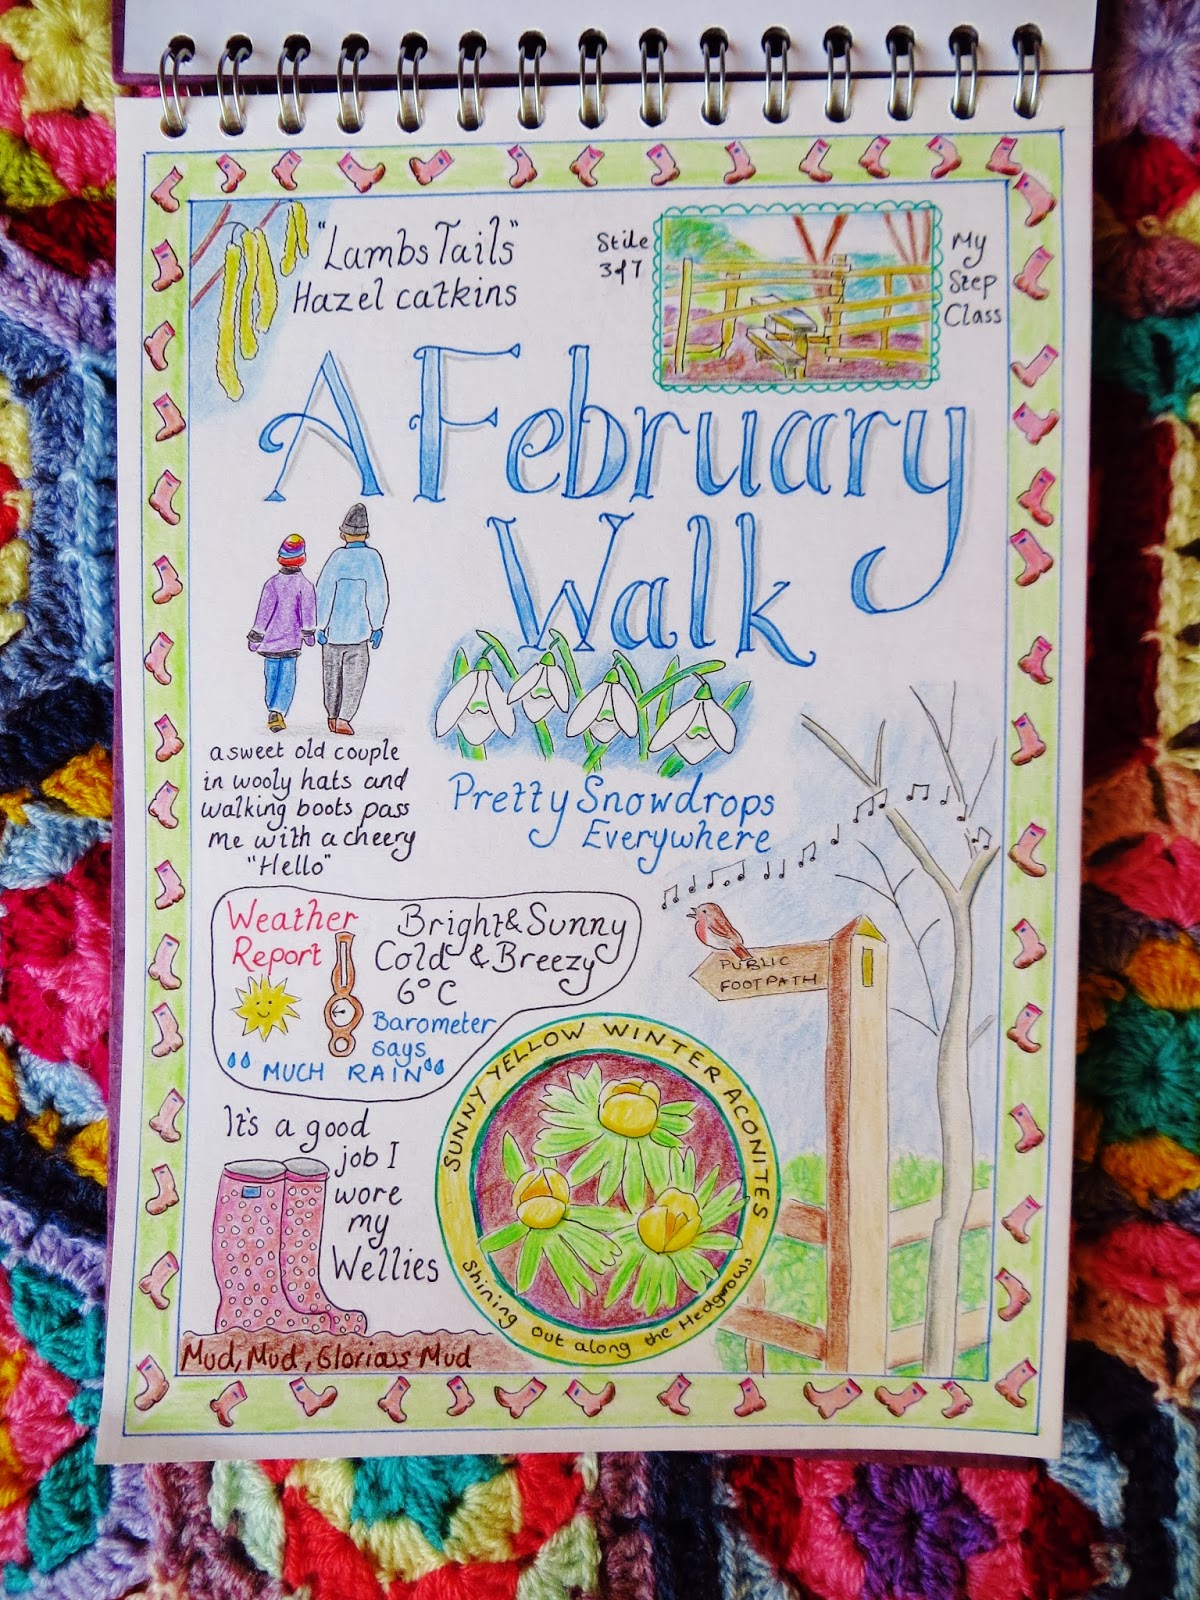 "Lambs Tails"
Hazel catkins
Stile
3 of 7
My
Step
Class
A February
Walk
a sweet old couple
in wooly hats and
walking boots pass
me with a cheery
"Hello"
Pretty Snowdrops
Everywhere
PUBLIC
FOOTPATH
Weather
Report
Bright & Sunny
Cold & Breezy
6°C
Barometer
says
MUCH RAIN
It's a good
job I
wore
my
Wellies
Mud, Mud, Glorious Mud
SUNNY YELLOW WINTER ACONITES
Shining out along the Hedgerows